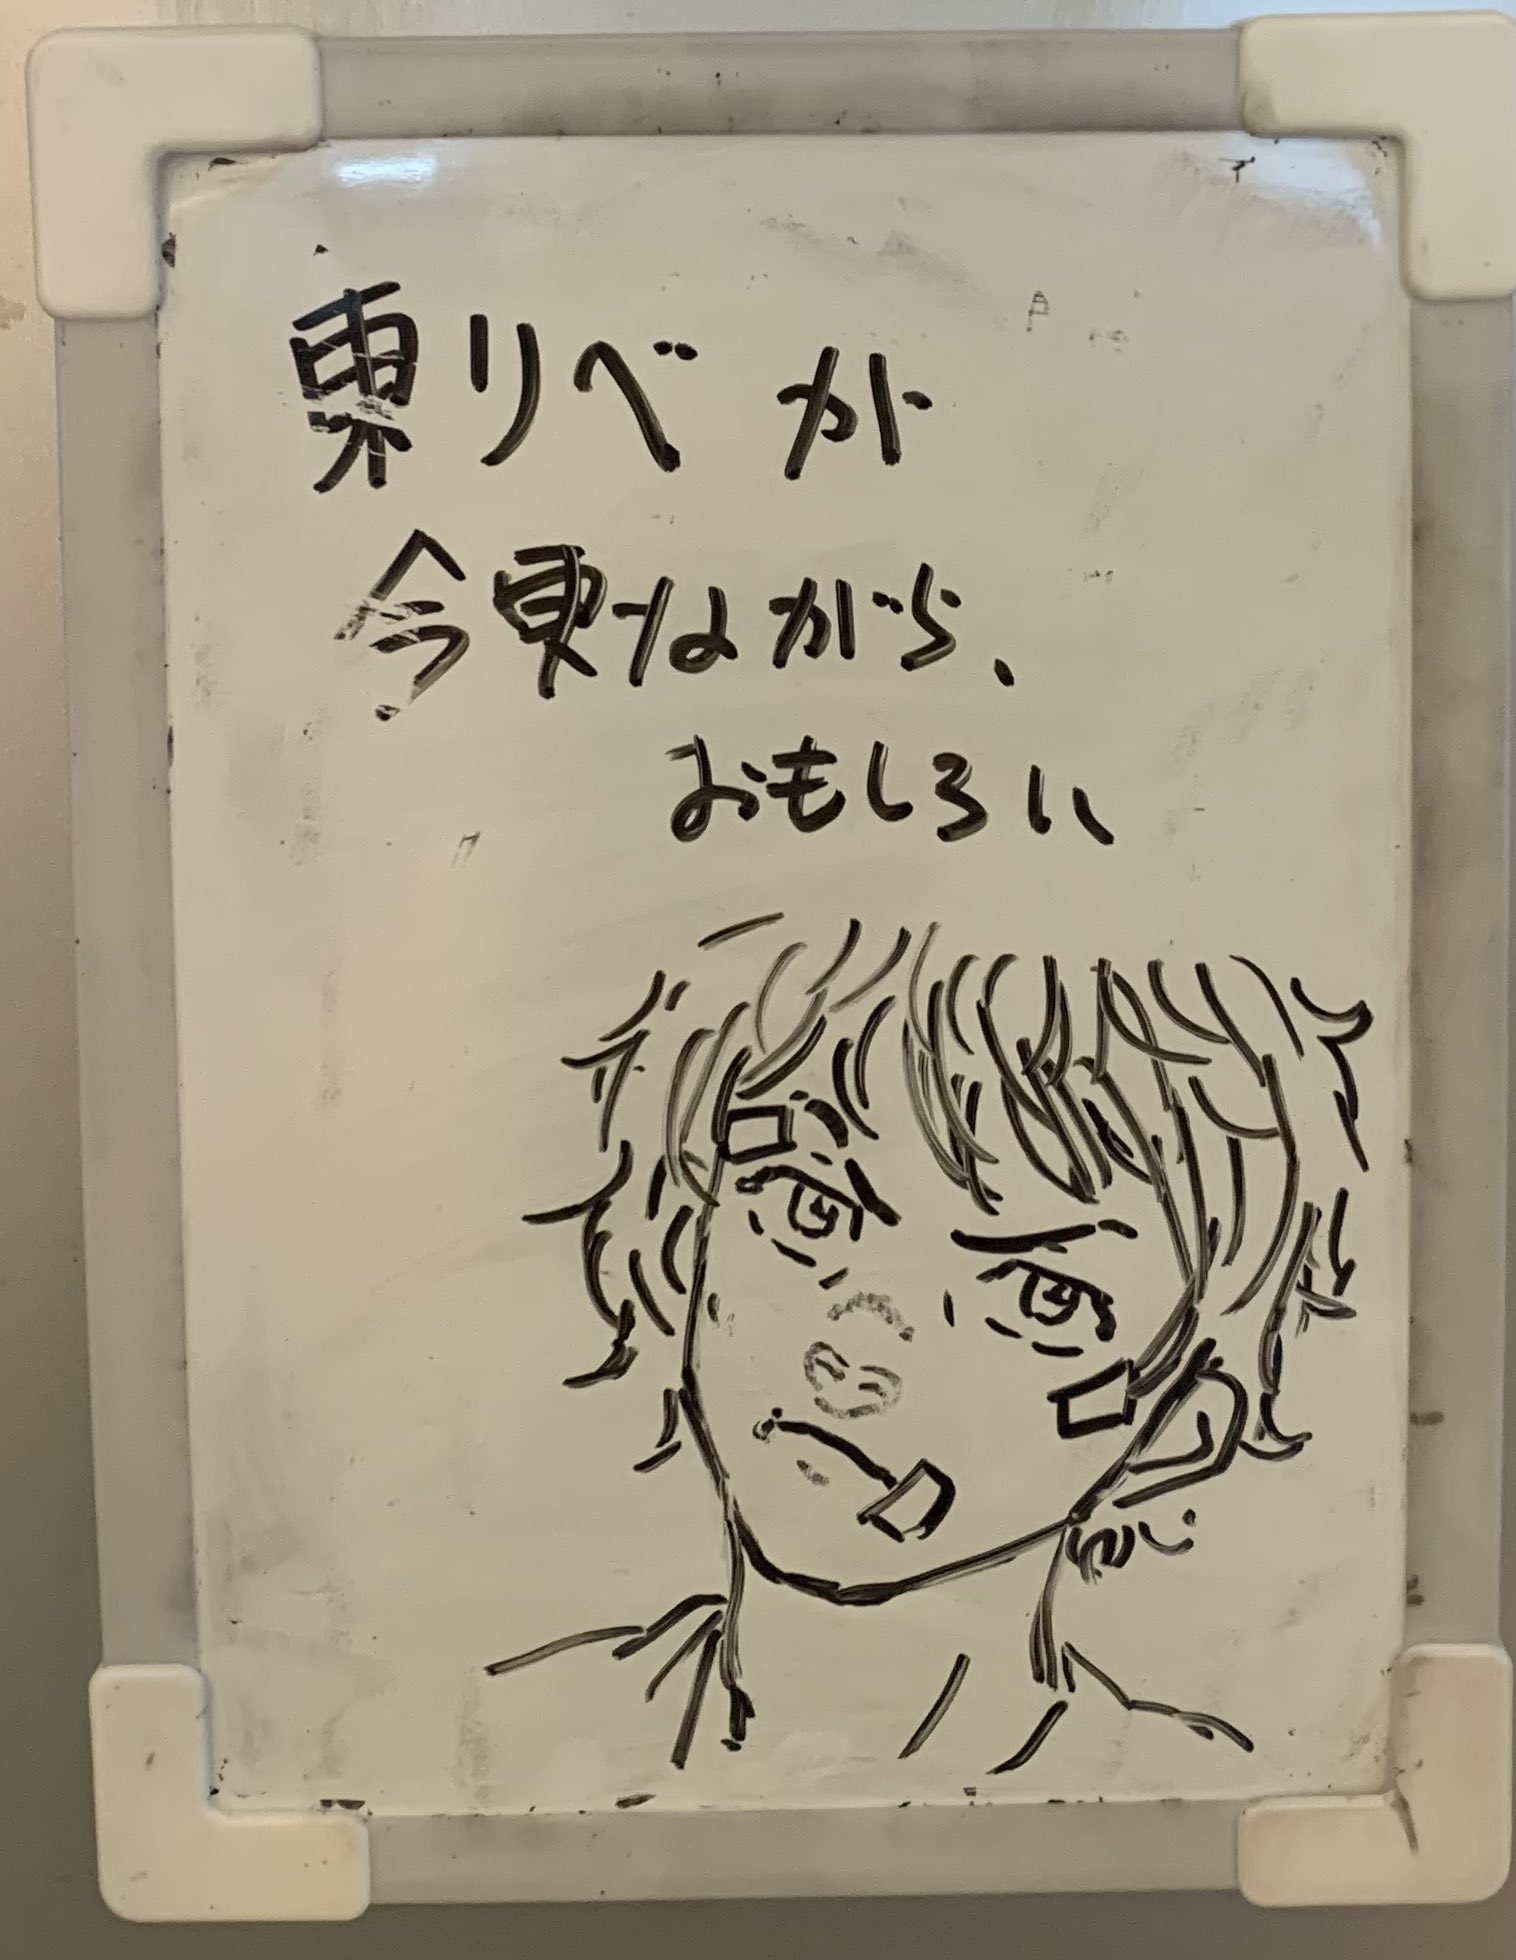 東リベが
今更ながら、
おもしろい